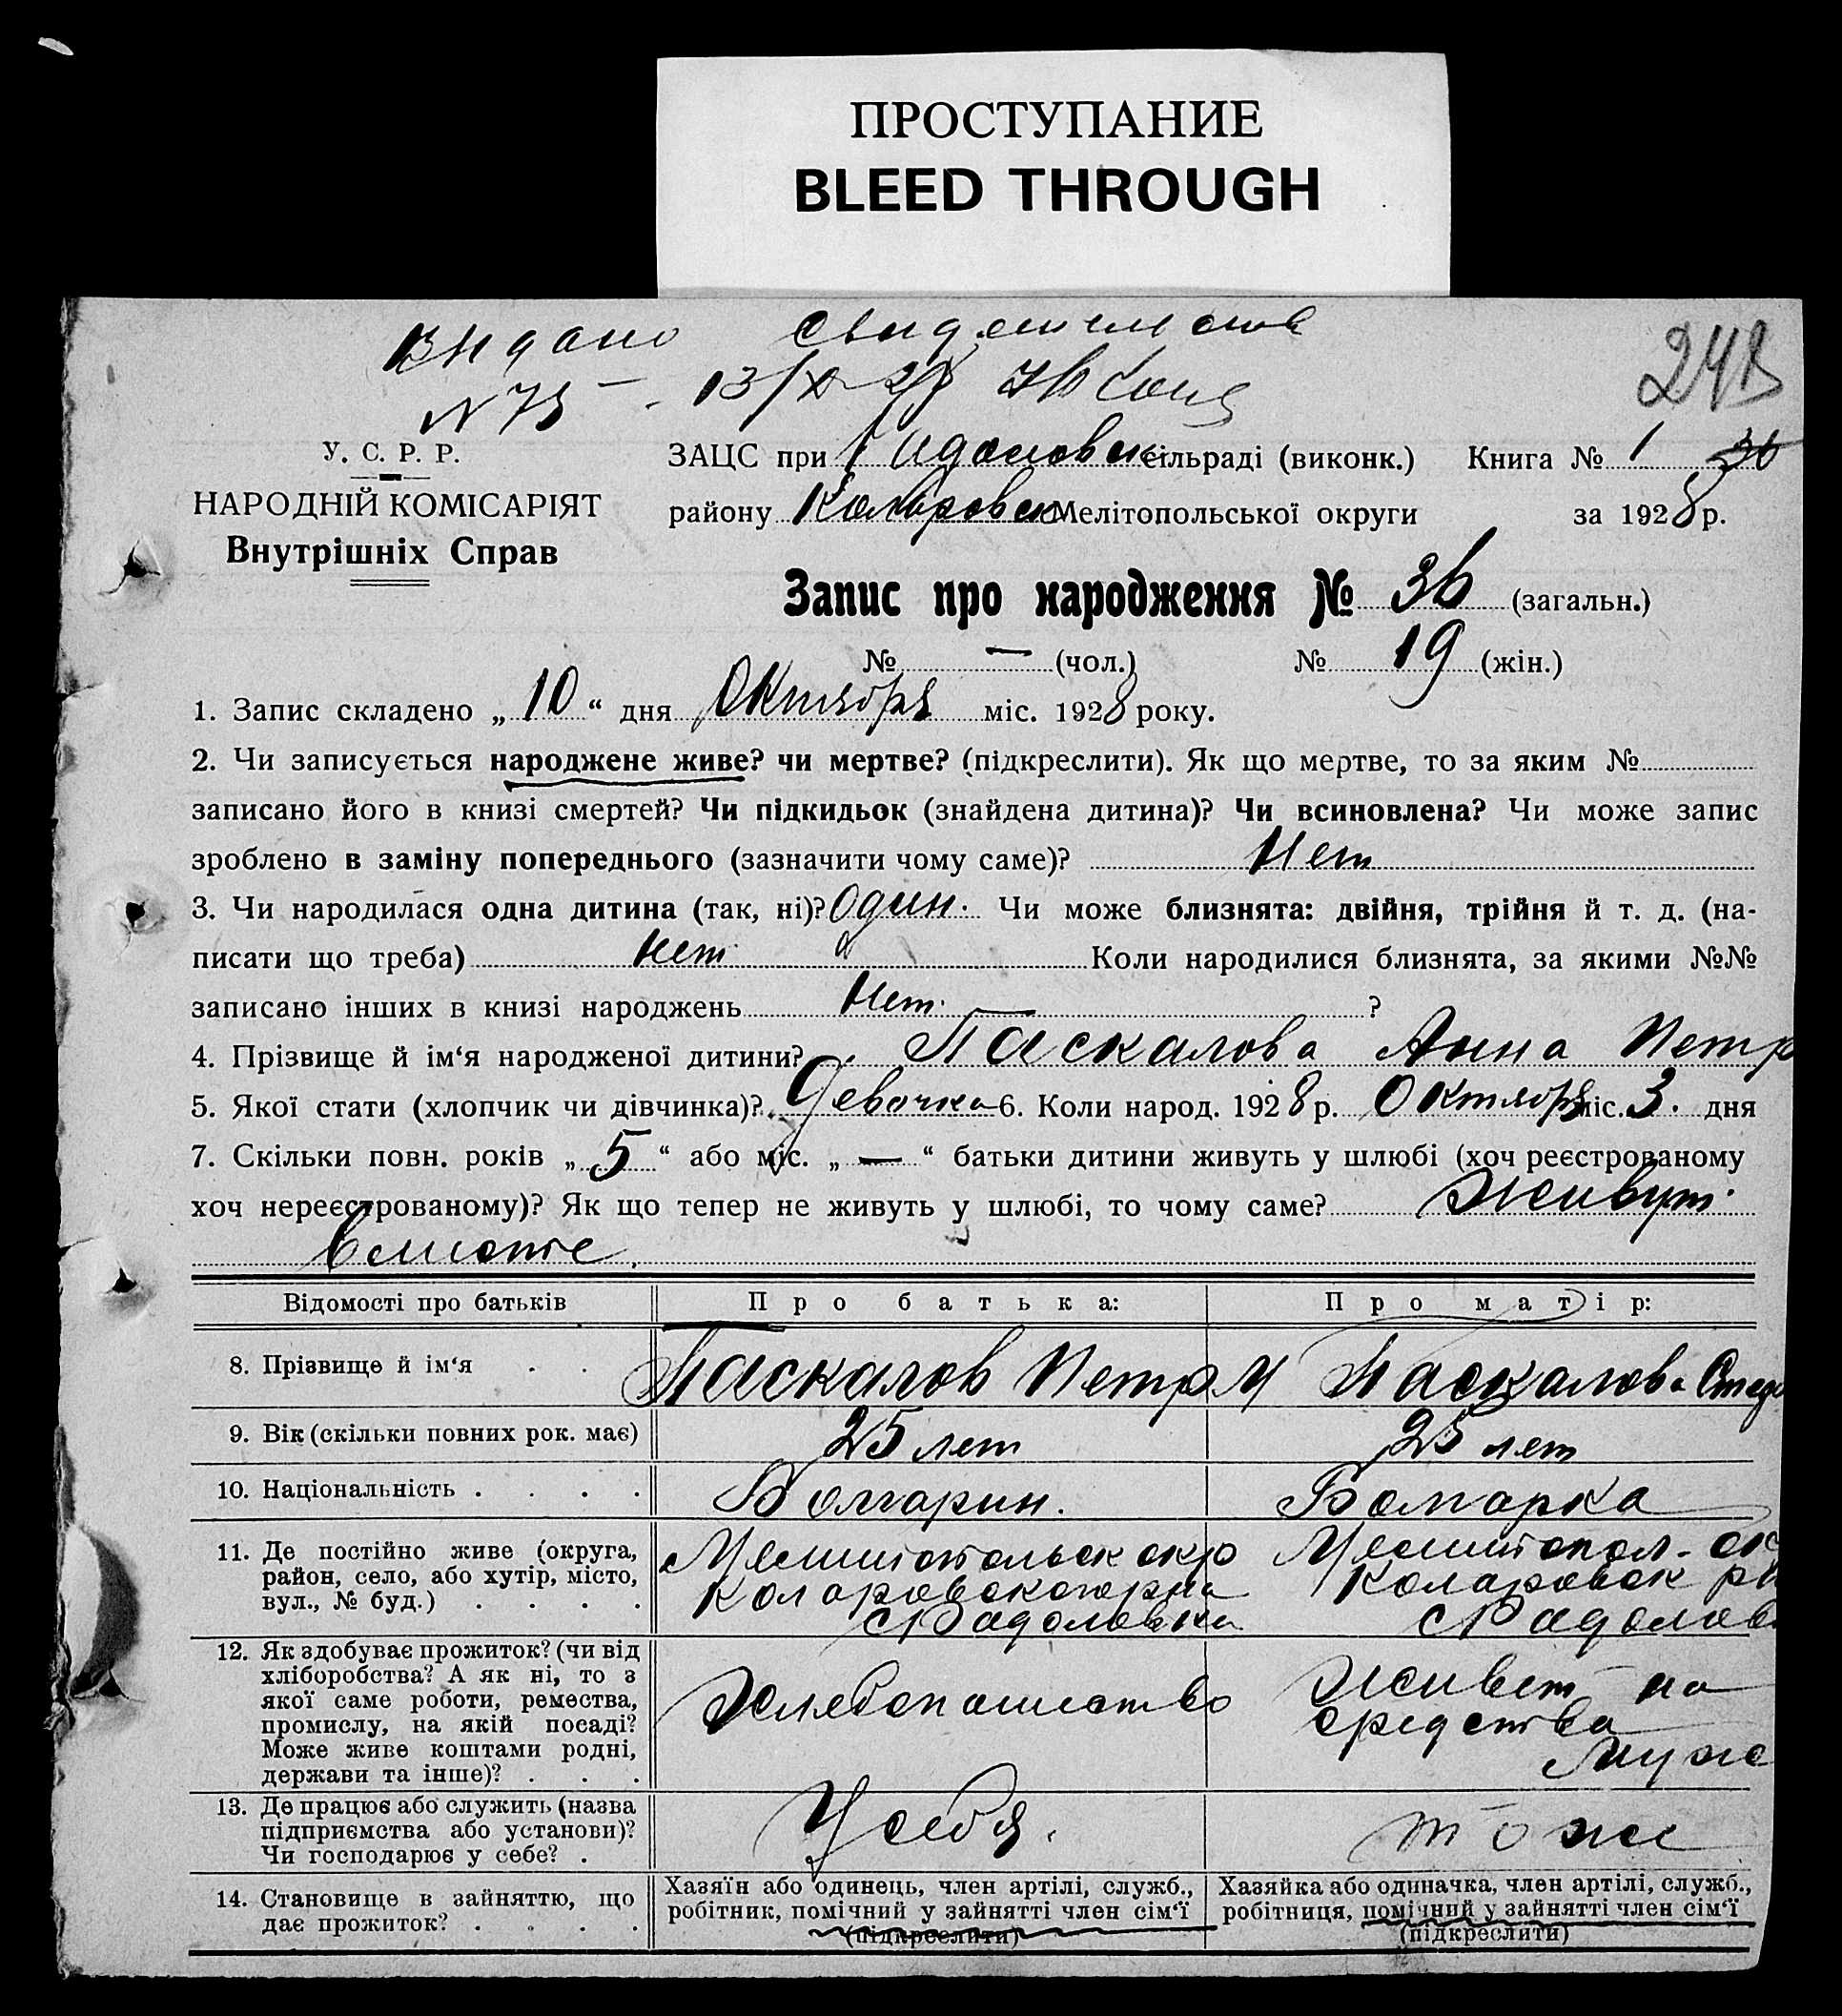 ПРОСТУПАНИЕ
BLEED THROUGH
Видано
N 75 - 13/X 28
У. С. Р. Р.
НАРОДНІЙ КОМІСАРІЯТ
Внутрішніх Справ
ЗАЦС при сільраді (виконк.) Книга № 1 36
району Коларовск Мелітопольської округи за 1928 р.
Запис про народження № 36 (загальн.)
№ — (чол.) № 19 (жін.)
1. Запис складено „ 10 “ дня Октября міс. 1928 року.
2. Чи записується народжене живе? чи мертве? (підкреслити). Як що мертве, то за яким №
записано його в книзі смертей? Чи підкидьок (знайдена дитина)? Чи всиновлена? Чи може запис
зроблено в заміну попереднього (зазначити чому саме)? Нет
3. Чи народилася одна дитина (так, ні)? Один. Чи може близнята: двійня, трійня й т. д. (на-
писати що треба) нет Коли народилися близнята, за якими №№
записано інших в книзі народжень Нет. ?
4. Прізвище й ім‘я народженої дитини? Паскалова Анна Петр
5. Якої стати (хлопчик чи дівчинка)? Девочка 6. Коли народ. 1928 р. Октября міс. 3. дня
7. Скільки повн. років „ 5 “ або міс. „ — “ батьки дитини живуть у шлюбі (хоч реєстрованому
хоч нереєстрованому)? Як що тепер не живуть у шлюбі, то чому саме? Живут
вместе.
Відомості про батьків Про батька: Про матір:
8. Прізвище й ім‘я Паскалов Петр И Паскалова
9. Вік (скільки повних рок. має) 25 лет 25 лет
10. Національність Болгарин. Болгарка
11. Де постійно живе (округа, Мелитопольск окр Мелитопол-ок
район, село, або хутір, місто, Коларовского рна Коларовск рн
вул., № буд.) с Радоловка с Радолов
12. Як здобуває прожиток? (чи від
хліборобства? А як ні, то з
якої саме роботи, ремества, Хлебопашество Живет на
промислу, на якій посаді? средства
Може живе коштами родні, муже
держави та інше)?
13. Де працює або служить (назва
підприємства або установи)? У себя. тоже
Чи господарює у себе?
14. Становище в зайняттю, що Хазяїн або одинець, член артілі, служб., Хазяйка або одиначка, член артілі, служб.,
дає прожиток? робітник, помічний у зайнятті член сім‘ї робітниця, помічний у зайнятті член сім‘ї
(підкреслити) (підкреслити)